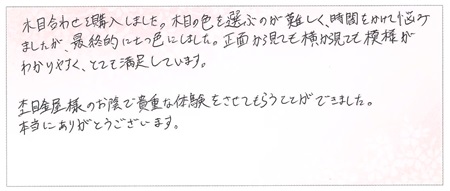 木目合わせを購入しました。木目の色を選ぶのが難しく、時間をかけて悩み
ましたが、最終的に七つ色にしました。正面から見ても横から見ても模様が
わかりやすく、とても満足しています。
杢目金屋様のお陰で貴重な体験をさせてもらうことができました。
本当にありがとうございます。